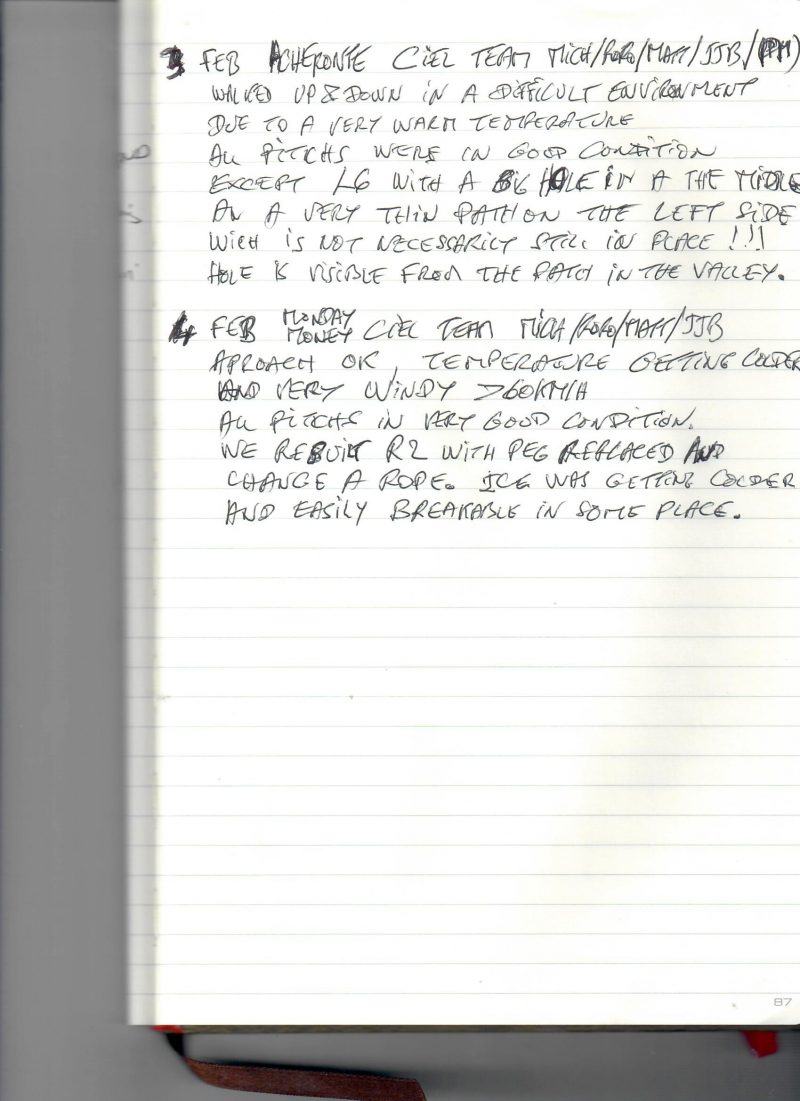 3 FEB ACHERONTE CIEL TEAM MICH/RORO/MATT/JJB/
WALKED UP & DOWN IN A DIFFICULT ENVIRONMENT
DUE TO A VERY WARM TEMPERATURE
ALL PITCHS WERE IN GOOD CONDITION
EXCEPT L6 WITH A BIG HOLE IN A THE MIDDLE
AN A VERY THIN PATH ON THE LEFT SIDE
WICH IS NOT NECESSARILY STILL IN PLACE !!!
HOLE IS VISIBLE FROM THE PATH IN THE VALLEY.
MONDAY
4 FEB MONEY CIEL TEAM MICH/RORO/MATT/JJB
APROACH OK, TEMPERATURE GETTING COLDER
AND VERY WINDY >60KM/H
ALL PITCHS IN VERY GOOD CONDITION.
WE REBUILT R2 WITH PEG REPLACED AND
CHANGE A ROPE. ICE WAS GETTING COLDER
AND EASILY BREAKABLE IN SOME PLACE.
87